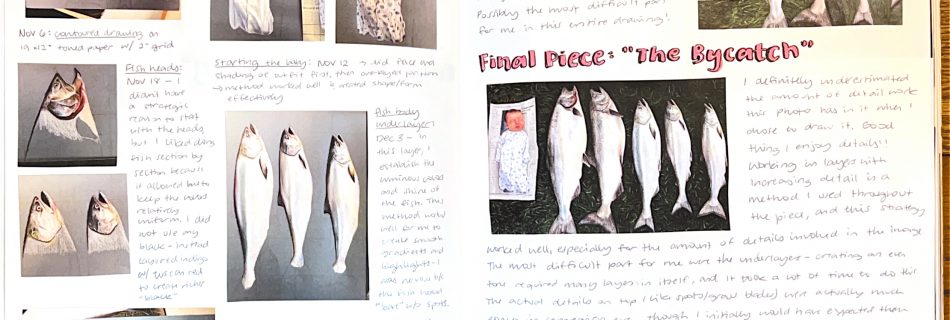 Nov 6: contoured drawing on
19 x 12" toned paper w/ 2" grid
Fish heads:
Nov 18 - I
didn't have
a strategic
reason to start
with the heads,
but I liked doing
fish section by
section because
it allowed me to
keep the heads
relatively
uniform. I did
not use any
black - instead
layered indigo
w/ tuscan red
to create richer
"black"
Starting the baby: Nov 12 → did face and
shading of outfit first, then overlayed pattern
→ method worked well & created shape/form
effectively
fish body
underlayer:
Dec 3 - in
this layer, I
establish the
luminous color
and shine of
the fish. This
method works
well for me to
create smooth
gradients and
highlights - I
was nervous b/c
the fish looked
"bare" w/o spots.
Possibly the most difficult part
for me in this entire drawing!
Final Piece: "The Bycatch"
I definitely underestimated
the amount of detail work
this photo has in it when I
chose to draw it. Good
thing I enjoy details!!
Working in layers with
increasing detail is a
method I used throughout
the piece, and this strategy
worked well, especially for the amount of details involved in the image
The most difficult part for me were the underlayer - creating an even
tone required many layers in itself, and it took a lot of time to do this
The actual details on top (like spots/grass blades) were actually much
though I initially would have expected them